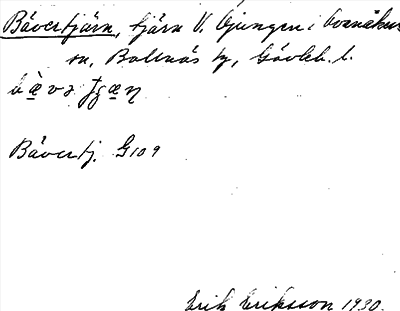 Bävertjärn, tjärn V. Ljungen i Ovanåkers
sn, Bollnäs tg, Gävleb. l.
Bävertj. G109
Erik Eriksson 1930.